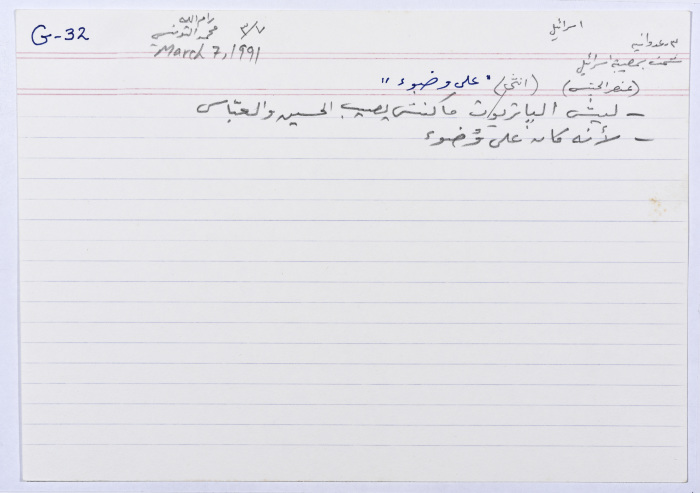 G-32
رام الله
٣/٧ محمد التونسي
March 7, 1991
اسرائيل
٣- عدوانية
شمت بمصيبة اسرائيل
(عنصر الجنس) (انتحل) "على وضوء"
- ليش الباتريوت ما كنش يصيب الحسين والعبّاس
- لأنه كان على وُضوء